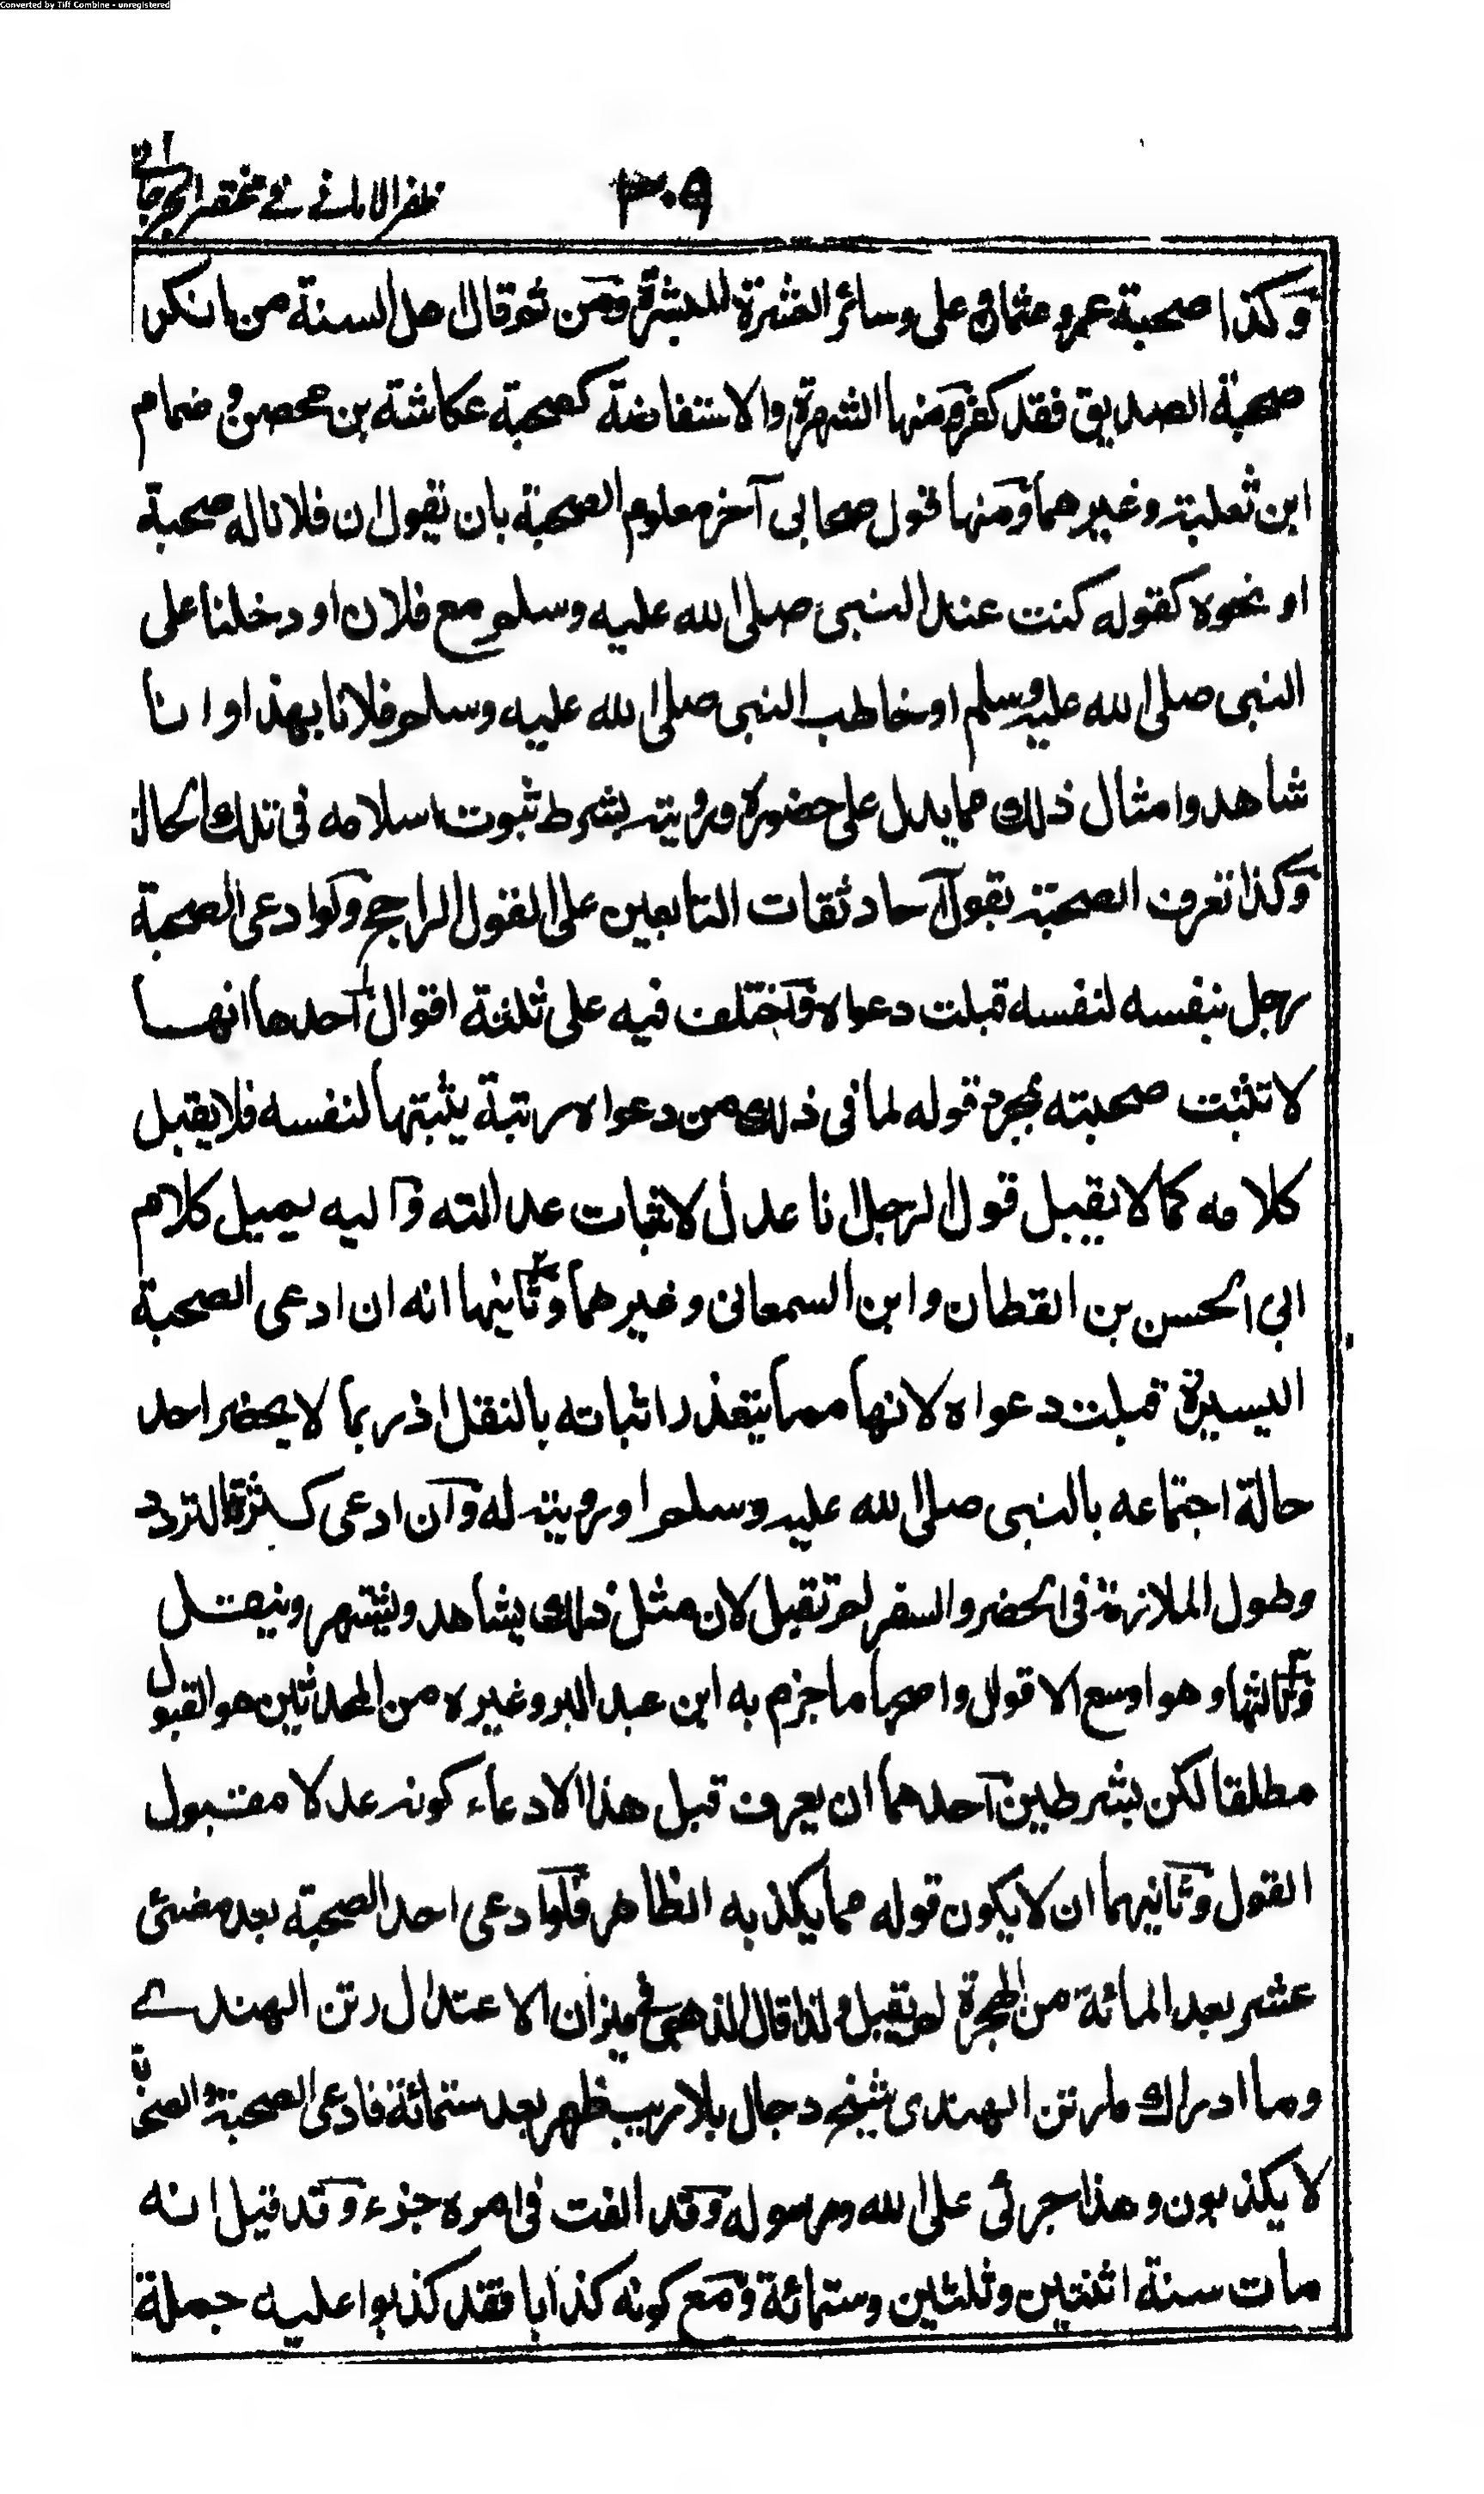 Converted by Tiff Combine - unregistered
ظفر الامانے فے مختصر الجرجانے
٣٠٩
وكذا صحبة عمر وعثمان وعلى وسائر العشرة المبشرة ومن ثم قال اهل السنة من انكر
صحبة الصديق فقد كفر ومنها الشهرة والاستفاضة كصحبة عكاشة بن محصن وضمام
ابن ثعلبة وغيرهما ومنها قول صحابى آخر معلوم الصحبة بان يقول ان فلانا له صحبة
او نحوه كقوله كنت عند النبى صلى الله عليه وسلم مع فلان او دخلنا على
النبى صلى الله عليه وسلم او خاطب النبى صلى الله عليه وسلم فلانا بهذا او انا
شاهد وامثال ذلك مما يدل على حضوره ورويته بشرط ثبوت اسلامه فى تلك الحالة
وكذا تعرف الصحبة بقول آحاد ثقات التابعين على القول الراجح ولو ادعى الصحبة
رجل بنفسه لنفسه قبلت دعواه واختلف فيه على ثلثة اقوال احدها انها
لا تثبت صحبته بمجرد قوله لما فى ذلك من دعواه رتبة يثبتها لنفسه فلا يقبل
كلامه كما لا يقبل قول الرجل انا عدل لاثبات عدالته واليه يميل كلام
ابى الحسن بن القطان وابن السمعانى وغيرهما وثانيها انه ان ادعى الصحبة
اليسيرة قبلت دعواه لانها مما يتعذر اثباته بالنقل اذ ربما لا يحضر احد
حالة اجتماعه بالنبى صلى الله عليه وسلم او رويته له وان ادعى كثرة التردد
وطول الملازمة فى الحضر والسفر لم تقبل لان مثل ذلك يشاهد ويشتهر وينقل
وثالثها وهو اوسع الاقوال واصحها ما جزم به ابن عبد البر وغيره من المحدثين هو القبول
مطلقا لكن بشرطين احدهما ان يعرف قبل هذا الادعاء كونه عدلا مقبول
القول وثانيهما ان لا يكون قوله مما يكذبه الظاهر فلو ادعى احد الصحبة بعد مضى
عشر بعد المائة من الهجرة لم تقبل ولذا قال الذهبى فى ميزان الاعتدال رتن الهندے
وما ادراك ما رتن الهندى شيخ دجال بلا ريب ظهر بعد ستمائة فادعى الصحبة والصحابة
لا يكذبون وهذا جرئ على الله ورسوله وقد الفت فى امره جزء وقد قيل انه
مات سنة اثنتين وثلثين وستمائة ومع كونه كذابا فقد كذبوا عليه جملة